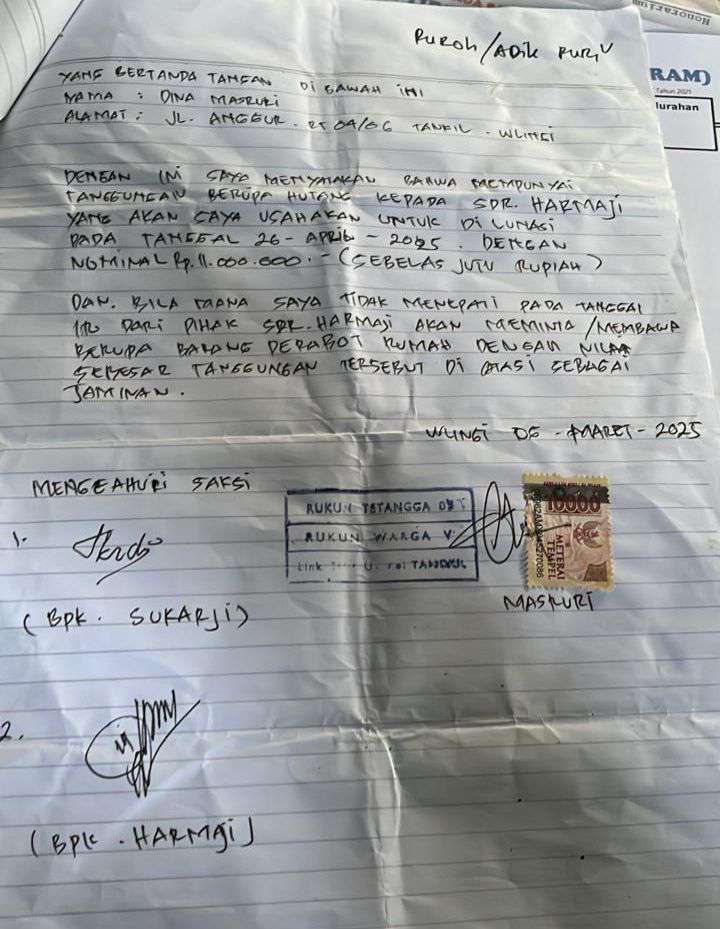 Honorarium
RAM)
Tahun 2021
lurahan
PUROH/ADIK PURI
YANG BERTANDA TANGAN DI BAWAH INI
NAMA : DINA MASRURI
ALAMAT : JL. ANGGUR. RT 04/06 TANGKIL - WLINGI
DENGAN INI SAYA MENYATAKAN BAHWA MEMPUNYAI
TANGGUNGAN BERUPA HUTANG KEPADA SDR. HARMAJI
YANG AKAN SAYA USAHAKAN UNTUK DI LUNASI
PADA TANGGAL 26 - APRIL - 2025. DENGAN
NOMINAL Rp. 11.000.000.- (SEBELAS JUTU RUPIAH)
DAN. BILA MANA SAYA TIDAK MENEPATI PADA TANGGAL
ITU DARI PIHAK SDR. HARMAJI AKAN MEMINTA/MEMBAWA
BERUPA BARANG PERABOT RUMAH DENGAN NILAI
SEBESAR TANGGUNGAN TERSEBUT DI ATAS SEBAGAI
JAMINAN.
WLINGI 05 - MARET - 2025
MENGEAHUI SAKSI
1.
RUKUN TETANGGA
RUKUN WARGA V
Link
10000
METERAI
TEMPEL
(BPK. SUKARJI)
MASRURI
2.
(BPK. HARMAJI)